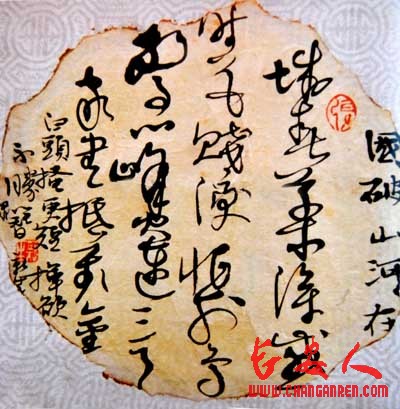 國破山河在
城春草木深感
時花濺淚恨別鳥
驚心烽火連三月
家書抵萬金
白頭搔更短渾欲
不勝簪
长安人
WWW.CHANGANREN.COM